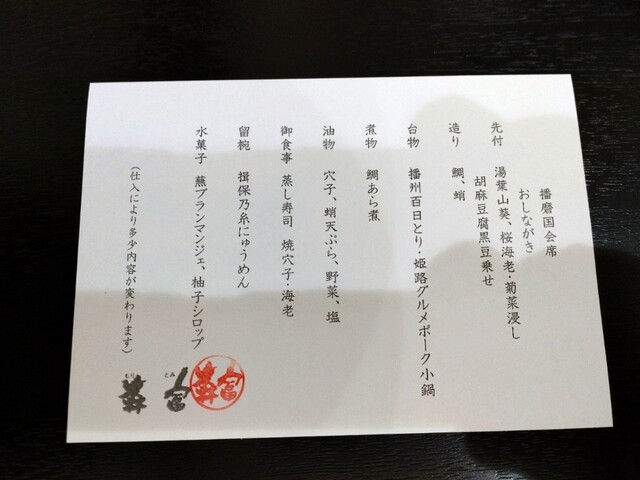 播磨国会席
おしながき
先付 湯葉山葵、桜海老・菊菜浸し
胡麻豆腐黒豆乗せ
造り 鯛、蛸
台物 播州百日とり・姫路グルメポーク小鍋
煮物 鯛あら煮
油物 穴子、蛸天ぷら、野菜、塩
御食事 蒸し寿司 焼穴子・海老
留椀 揖保乃糸にゅうめん
水菓子 蕪ブランマンジェ、柚子シロップ
(仕入により多少内容が変わります)
とみ
もり